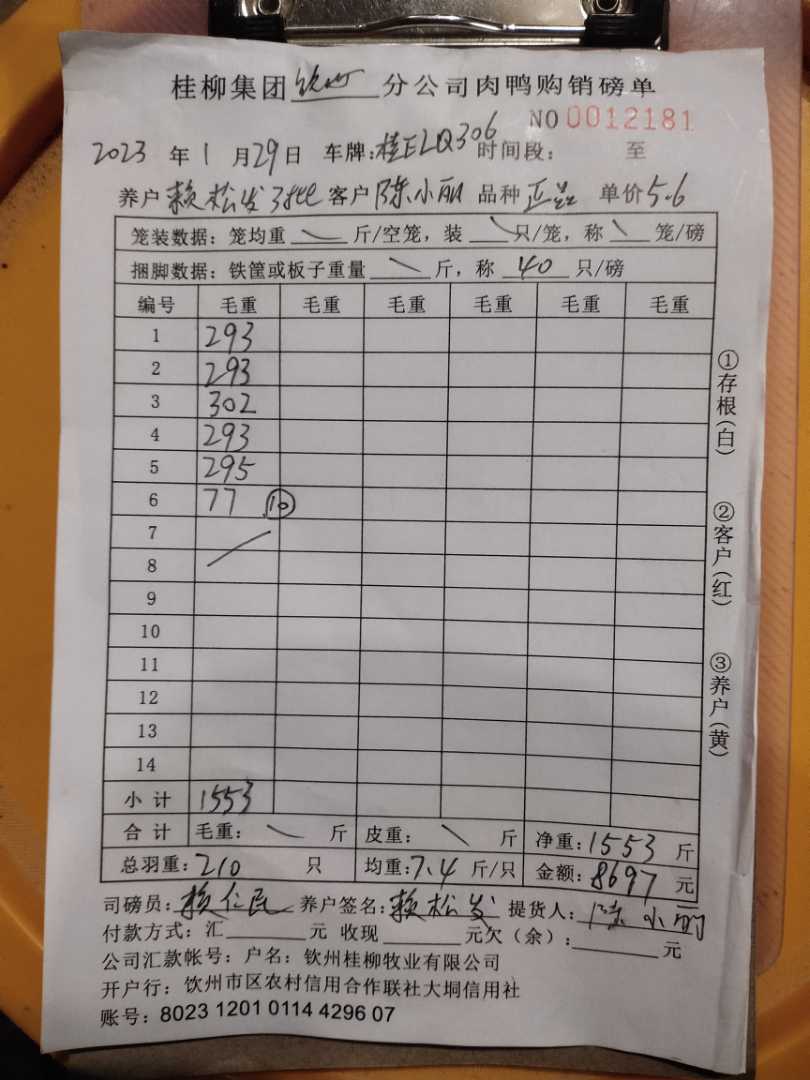 桂柳集团钦州分公司肉鸭购销磅单
NO 0012181
2023年1月29日 车牌:桂ELQ306 时间段: 至
养户 赖松发3批 客户 陈小丽 品种 单价5.6
笼装数据:笼均重 \ 斤/空笼,装 \ 只/笼,称 \ 笼/磅
捆脚数据:铁筐或板子重量 \ 斤,称 40 只/磅
编号 毛重 毛重 毛重 毛重 毛重 毛重
1 293
2 293
3 302
4 293
5 295
6 77 ⑩
7
8
9
10
11
12
13
14
小计 1553
合计 毛重: \ 斤 皮重: \ 斤 净重:1553斤
总羽重:210 只 均重:7.4斤/只 金额:8697元
司磅员:赖仁民 养户签名:赖松发 提货人:陈小丽
付款方式:汇 元 收现 元欠(余): 元
公司汇款帐号:户名:钦州桂柳牧业有限公司
开户行:钦州市区农村信用合作联社大垌信用社
账号:8023 1201 0114 4296 07
①存根(白)
②客户(红)
③养户(黄)